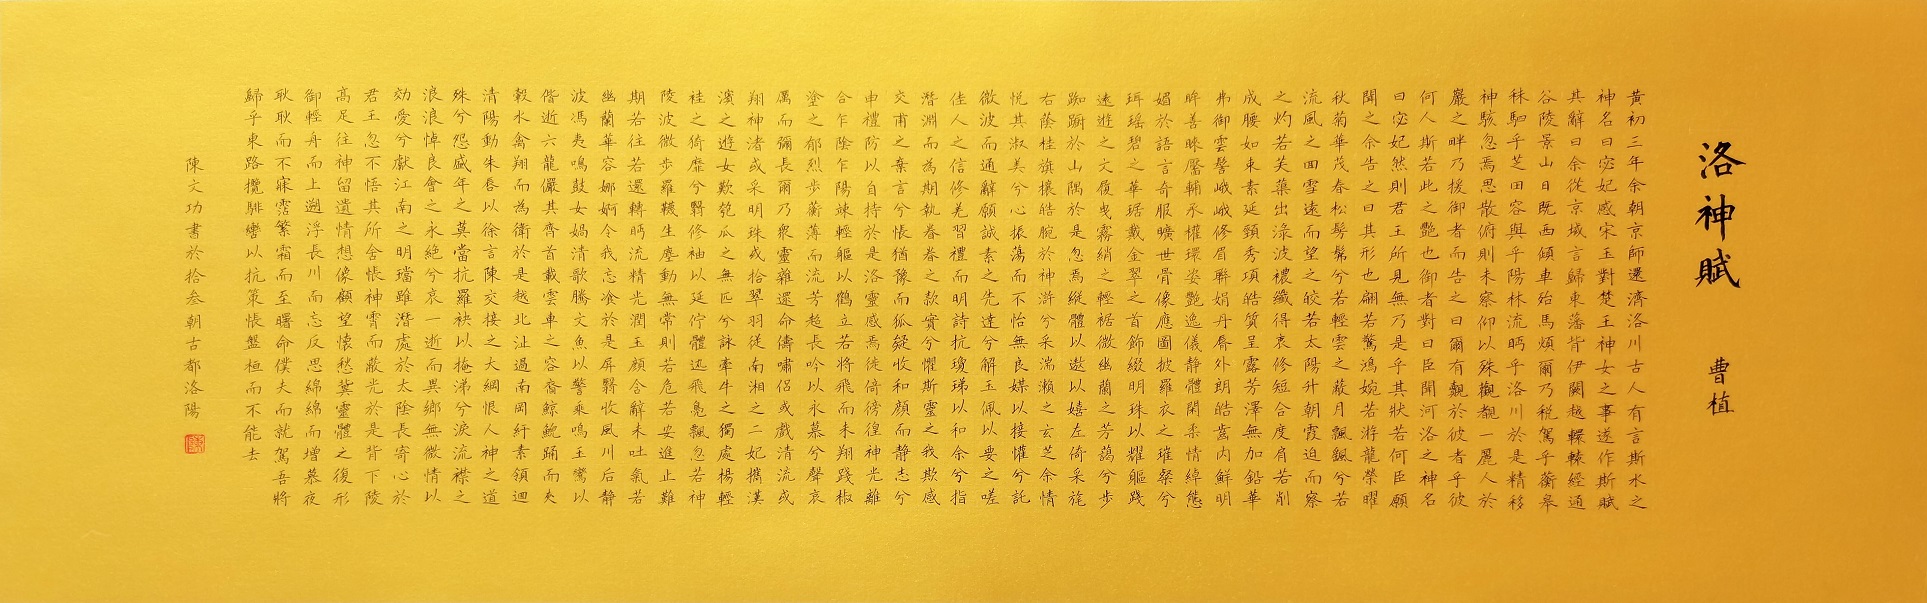 洛神賦 曹植
黃初三年余朝京師還濟洛川古人有言斯水之
神名曰宓妃感宋玉對楚王神女之事遂作斯賦
其辭曰余從京域言歸東藩背伊闕越轘轅經通
谷陵景山日既西傾車殆馬煩爾乃税駕乎蘅皋
秣駟乎芝田容與乎陽林流眄乎洛川於是精移
神駭忽焉思散俯則未察仰以殊觀覩一麗人於
巖之畔乃援御者而告之曰爾有覿於彼者乎彼
何人斯若此之艷也御者對曰臣聞河洛之神名
曰宓妃然則君王所見無乃是乎其狀若何臣願
聞之余告之曰其形也翩若驚鴻婉若游龍榮曜
秋菊華茂春松髣髴兮若輕雲之蔽月飄飖兮若
流風之回雪遠而望之皎若太陽升朝霞迫而察
之灼若芙蕖出淥波襛纖得衷修短合度肩若削
成腰如束素延頸秀項皓質呈露芳澤無加鉛華
弗御雲髻峨峨修眉聯娟丹脣外朗皓齒内鮮明
眸善睞靨輔承權環姿艷逸儀静體閑柔情綽態
媚於語言奇服曠世骨像應圖披羅衣之璀粲兮
珥瑤碧之華琚戴金翠之首飾綴明珠以耀軀踐
遠遊之文履曳霧綃之輕裾微幽蘭之芳藹兮步
踟躕於山隅於是忽焉縱體以遨以嬉左倚采旄
右蔭桂旗攘皓腕於神滸兮采湍瀨之玄芝余情
悦其淑美兮心振蕩而不怡無良媒以接懽兮託
微波而通辭願誠素之先達兮解玉佩以要之嗟
佳人之信修羌習禮而明詩抗瓊珶以和余兮指
潛淵而為期執眷眷之款實兮懼斯靈之我欺感
交甫之棄言兮悵猶豫而狐疑收和顏而静志兮
申禮防以自持於是洛靈感焉徙倚傍徨神光離
合乍陰乍陽竦輕軀以鶴立若將飛而未翔踐椒
塗之郁烈步蘅薄而流芳超長吟以永慕兮聲哀
厲而彌長爾乃衆靈雜遝命儔嘯侶或戲清流或
翔神渚或采明珠或拾翠羽從南湘之二妃攜漢
濱之遊女歎匏瓜之無匹兮詠牽牛之獨處揚輕
袿之猗靡兮翳修袖以延佇體迅飛鳧飄忽若神
陵波微步羅韈生塵動無常則若危若安進止難
期若往若還轉眄流精光潤玉顏含辭未吐氣若
幽蘭華容婀娜令我忘飡於是屏翳收風川后静
波馮夷鳴鼓女媧清歌騰文魚以警乘鳴玉鸞以
偕逝六龍儼其齊首載雲車之容裔鯨鯢踊而夾
轂水禽翔而為衛於是越北沚過南岡紆素領迴
清陽動朱脣以徐言陳交接之大綱恨人神之道
殊兮怨盛年之莫當抗羅袂以掩涕兮淚流襟之
浪浪悼良會之永絶兮哀一逝而異鄉無微情以
効愛兮獻江南之明璫雖潛處於太陰長寄心於
君王忽不悟其所舍悵神霄而蔽光於是背下陵
高足往神留遺情想像顧望懷愁冀靈體之復形
御輕舟而上遡浮長川而忘反思綿綿而增慕夜
耿耿而不寐霑繁霜而至曙命僕夫而就駕吾將
歸乎東路攬騑轡以抗策悵盤桓而不能去
陳文功書於拾叁朝古都洛陽